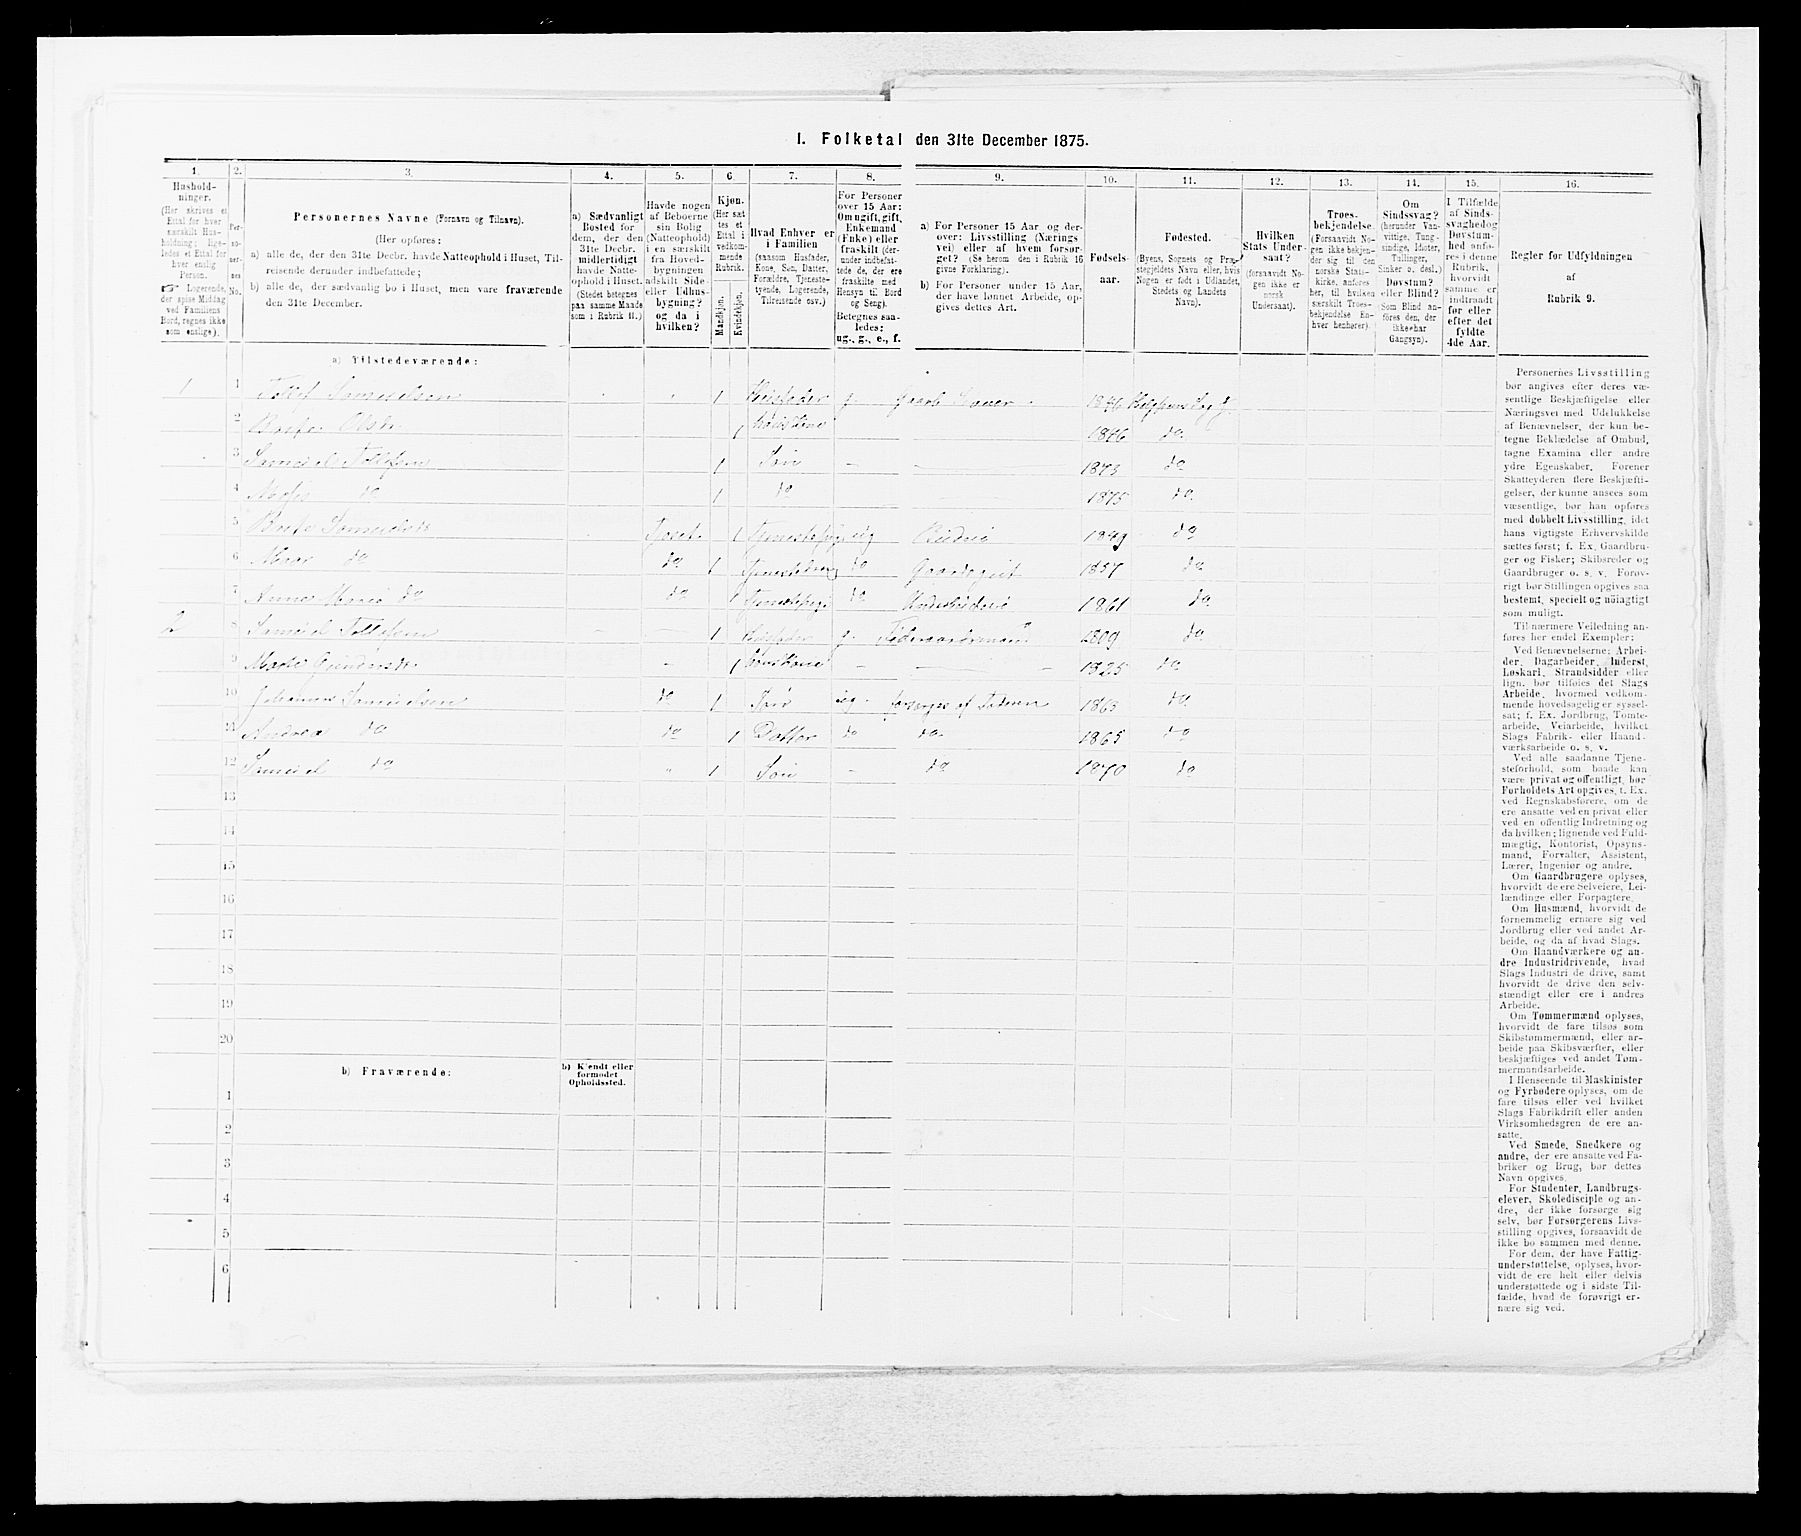 I. Folketal den 31te December 1875.
1.
Hushold-
ninger.
(Her skrives et
Ettal for hver
særskilt Hus-
holdning; lige-
ledes et Ettal for
hver enslig
Person.
☛ Logerende,
der spise Middag
ved Familiens
Bord, regnes ikke
som enslige).
2.
Per-
so-
ner-
nes
No.
3.
Personernes Navne (Fornavn og Tilnavn).
(Her opføres:
a) alle de, der den 31te Decbr. havde Natteophold i Huset, Til-
reisende derunder indbefattede;
b) alle de, der sædvanlig bo i Huset, men vare fraværende
den 31te December.
4.
a) Sædvanligt
Bosted for
dem, der den
31te Decbr.
midlertidigt
havde Natte-
ophold i Huset.
(Stedet betegnes
paa samme Maade
som i Rubrik 11.)
5.
Havde nogen
af Beboerne
sin Bolig
(Natteophold)
i en særskilt
fra Hoved-
bygningen
adskilt Side-
eller Udhus-
bygning?
og da i
hvilken?
6.
Kjøn.
(Her sæt
tes et
Ettal i
vedkom-
mende
Rubrik.
Mandkjøn.
Kvindekjøn.
7.
Hvad Enhver er
i Familien
(saasom Husfader,
Kone, Søn, Datter,
Forældre, Tjeneste-
tyende, Logerende,
Tilreisende osv.)
8.
For Personer
over 15 Aar:
Om ugift, gift,
Enkemand
(Enke) eller
fraskilt (der-
under indbefat-
tede de, der ere
fraskilte med
Hensyn til Bord
og Seng).
Betegnes saa-
ledes:
ug., g., e., f.
9.
a) For Personer 15 Aar og der-
over: Livsstilling (Nærings
vei) eller af hvem forsør-
get? (Se herom den i Rubrik 16
givne Forklaring).
b) For Personer under 15 Aar,
der have lønnet Arbeide, op-
gives dettes Art.
10.
Fødsels-
aar.
11.
Fødested.
(Byens, Sognets og Præ-
stegjeldets Navn eller, hvis
Nogen er født i Udlandet,
Stedets og Landets
Navn).
12.
Hvilken
Stats Under-
saat?
(forsaavidt No-
gen ikke er
norsk
Undersaat).
13.
Troes-
bekjendelse.
(Forsaavidt No-
gen ikke bekjen-
der sig til den
norske Stats-
kirke, anføres
her, til hvilken
særskilt Troes-
bekjendelse En-
hver henhører).
14.
Om
Sindssvag?
(herunder Van-
vittige, Tung-
sindige, Idioter,
Tullinger,
Sinker o. desl.)
Døvstum?
eller Blind?
(Som Blind an-
føres den, der
ikke har
Gangsyn).
15.
I Tilfælde
af Sinds-
svaghed og
Døvstum-
hed anfø-
res i denne
Rubrik,
hvorvidt
samme er
indtraadt
før eller
efter det
fyldte
4de Aar.
16.
Regler for Udfyldningen
af
Rubrik 9.
a) Tilstedeværende:
1 1 Tollef Samuelsen 1 Husfader g. 1846
2 Olsdr 1 Huuskone 1846 do
3 Samuel Tollefsen 1 Søn 1873 do
4 do 1 do 1875 do
5 1 ug 1849 do
6 do do 1 do 1857 do
7 Anne Marie do do 1 do 1861 do
2 8 Samuel Tollefsen 1 Husfader g. 1809 do
9 Gundersdr 1 Huuskone 1825 do
10 Johannes Samuelsen do 1 Søn ug. forsørges af Faderen 1863 do
11 Andrea do do 1 Datter do do 1865 do
12 Samuel do 1 Søn do 1870 do
13
14
15
16
17
18
19
20
b) Fraværende:
b) Kjendt eller
formodet
Opholdssted.
1
2
3
4
5
6
Personernes Livsstilling
bør angives efter deres væ-
sentlige Beskjæftigelse eller
Næringsvei med Udelukkelse
af Benævnelser, der kun be-
tegne Beklædelse af Ombud,
tagne Examina eller andre
ydre Egenskaber. Forener
Skatteyderen flere Beskjæfti-
gelser, der kunne ansees som
væsentlige, bør han opføres
med dobbelt Livsstilling, idet
hans vigtigste Erhvervskilde
sættes først; f. Ex. Gaardbru-
ger og Fisker; Skibsreder og
Gaardbruger o. s. v. Forøv-
rigt bør Stillingen opgives saa
bestemt, specielt og nøiagtigt
som muligt.
Til nærmere Veiledning an-
føres her endel Exempler:
Ved Benævnelserne: Arbei-
der, Dagarbeider, Inderst,
Løskarl, Strandsidder eller
lign. bør tilføies det Slags
Arbeide, hvormed vedkom-
mende hovedsagelig er syssel-
sat; f. Ex. Jordbrug, Tomte-
arbeide, Veiarbeide, hvilket
Slags Fabrik- eller Haand-
værksarbeide o. s. v.
Ved alle saadanne Tjene-
steforhold, som baade kan
være privat og offentligt, bør
Forholdets Art opgives, t. Ex.
ved Regnskabsførere, om de
ere ansatte ved en privat eller
ved en offentlig Indretning og
da hvilken; lignende ved Fuld-
mægtig, Kontorist, Opsyns-
mand, Forvalter, Assistent,
Lærer, Ingeniør og andre.
Om Gaardbrugere oplyses,
hvorvidt de ere Selveiere, Lei-
lændinge eller Forpagtere.
Om Husmænd, hvorvidt de
fornemmelig ernære sig ved
Jordbrug eller ved andet Ar-
beide, og da af hvad Slags.
Om Haandværkere og an-
dre Industridrivende, hvad
Slags Industri de drive, samt
hvorvidt de drive den selv-
stændigt eller ere i andres
Arbeide.
Om Tømmermænd oplyses,
hvorvidt de fare tilsøs som
Skibstømmermænd, eller ar-
beide paa Skibsværfter, eller
beskjæftiges ved andet Tøm-
mermandsarbeide.
I Henseende til Maskinister
og Fyrbødere oplyses, om de
fare tilsøs eller ved hvilket
Slags Fabrikdrift eller anden
Virksomhedsgren de ere an-
satte.
Ved Smede, Snedkere og
andre, der ere ansatte ved Fa-
briker og Brug, bør dettes
Navn opgives.
For Studenter, Landbrugs-
elever, Skoledisciple og an-
dre, der ikke forsørge sig
selv, bør Forsørgerens Livs-
stilling opgives, forsaavidt de
ikke bo sammen med denne.
For dem, der have Fattig-
understøttelse, oplyses, hvor-
vidt de ere helt eller delvis
understøttede og i sidste Til-
fælde, hvad de forøvrigt er-
nære sig ved.